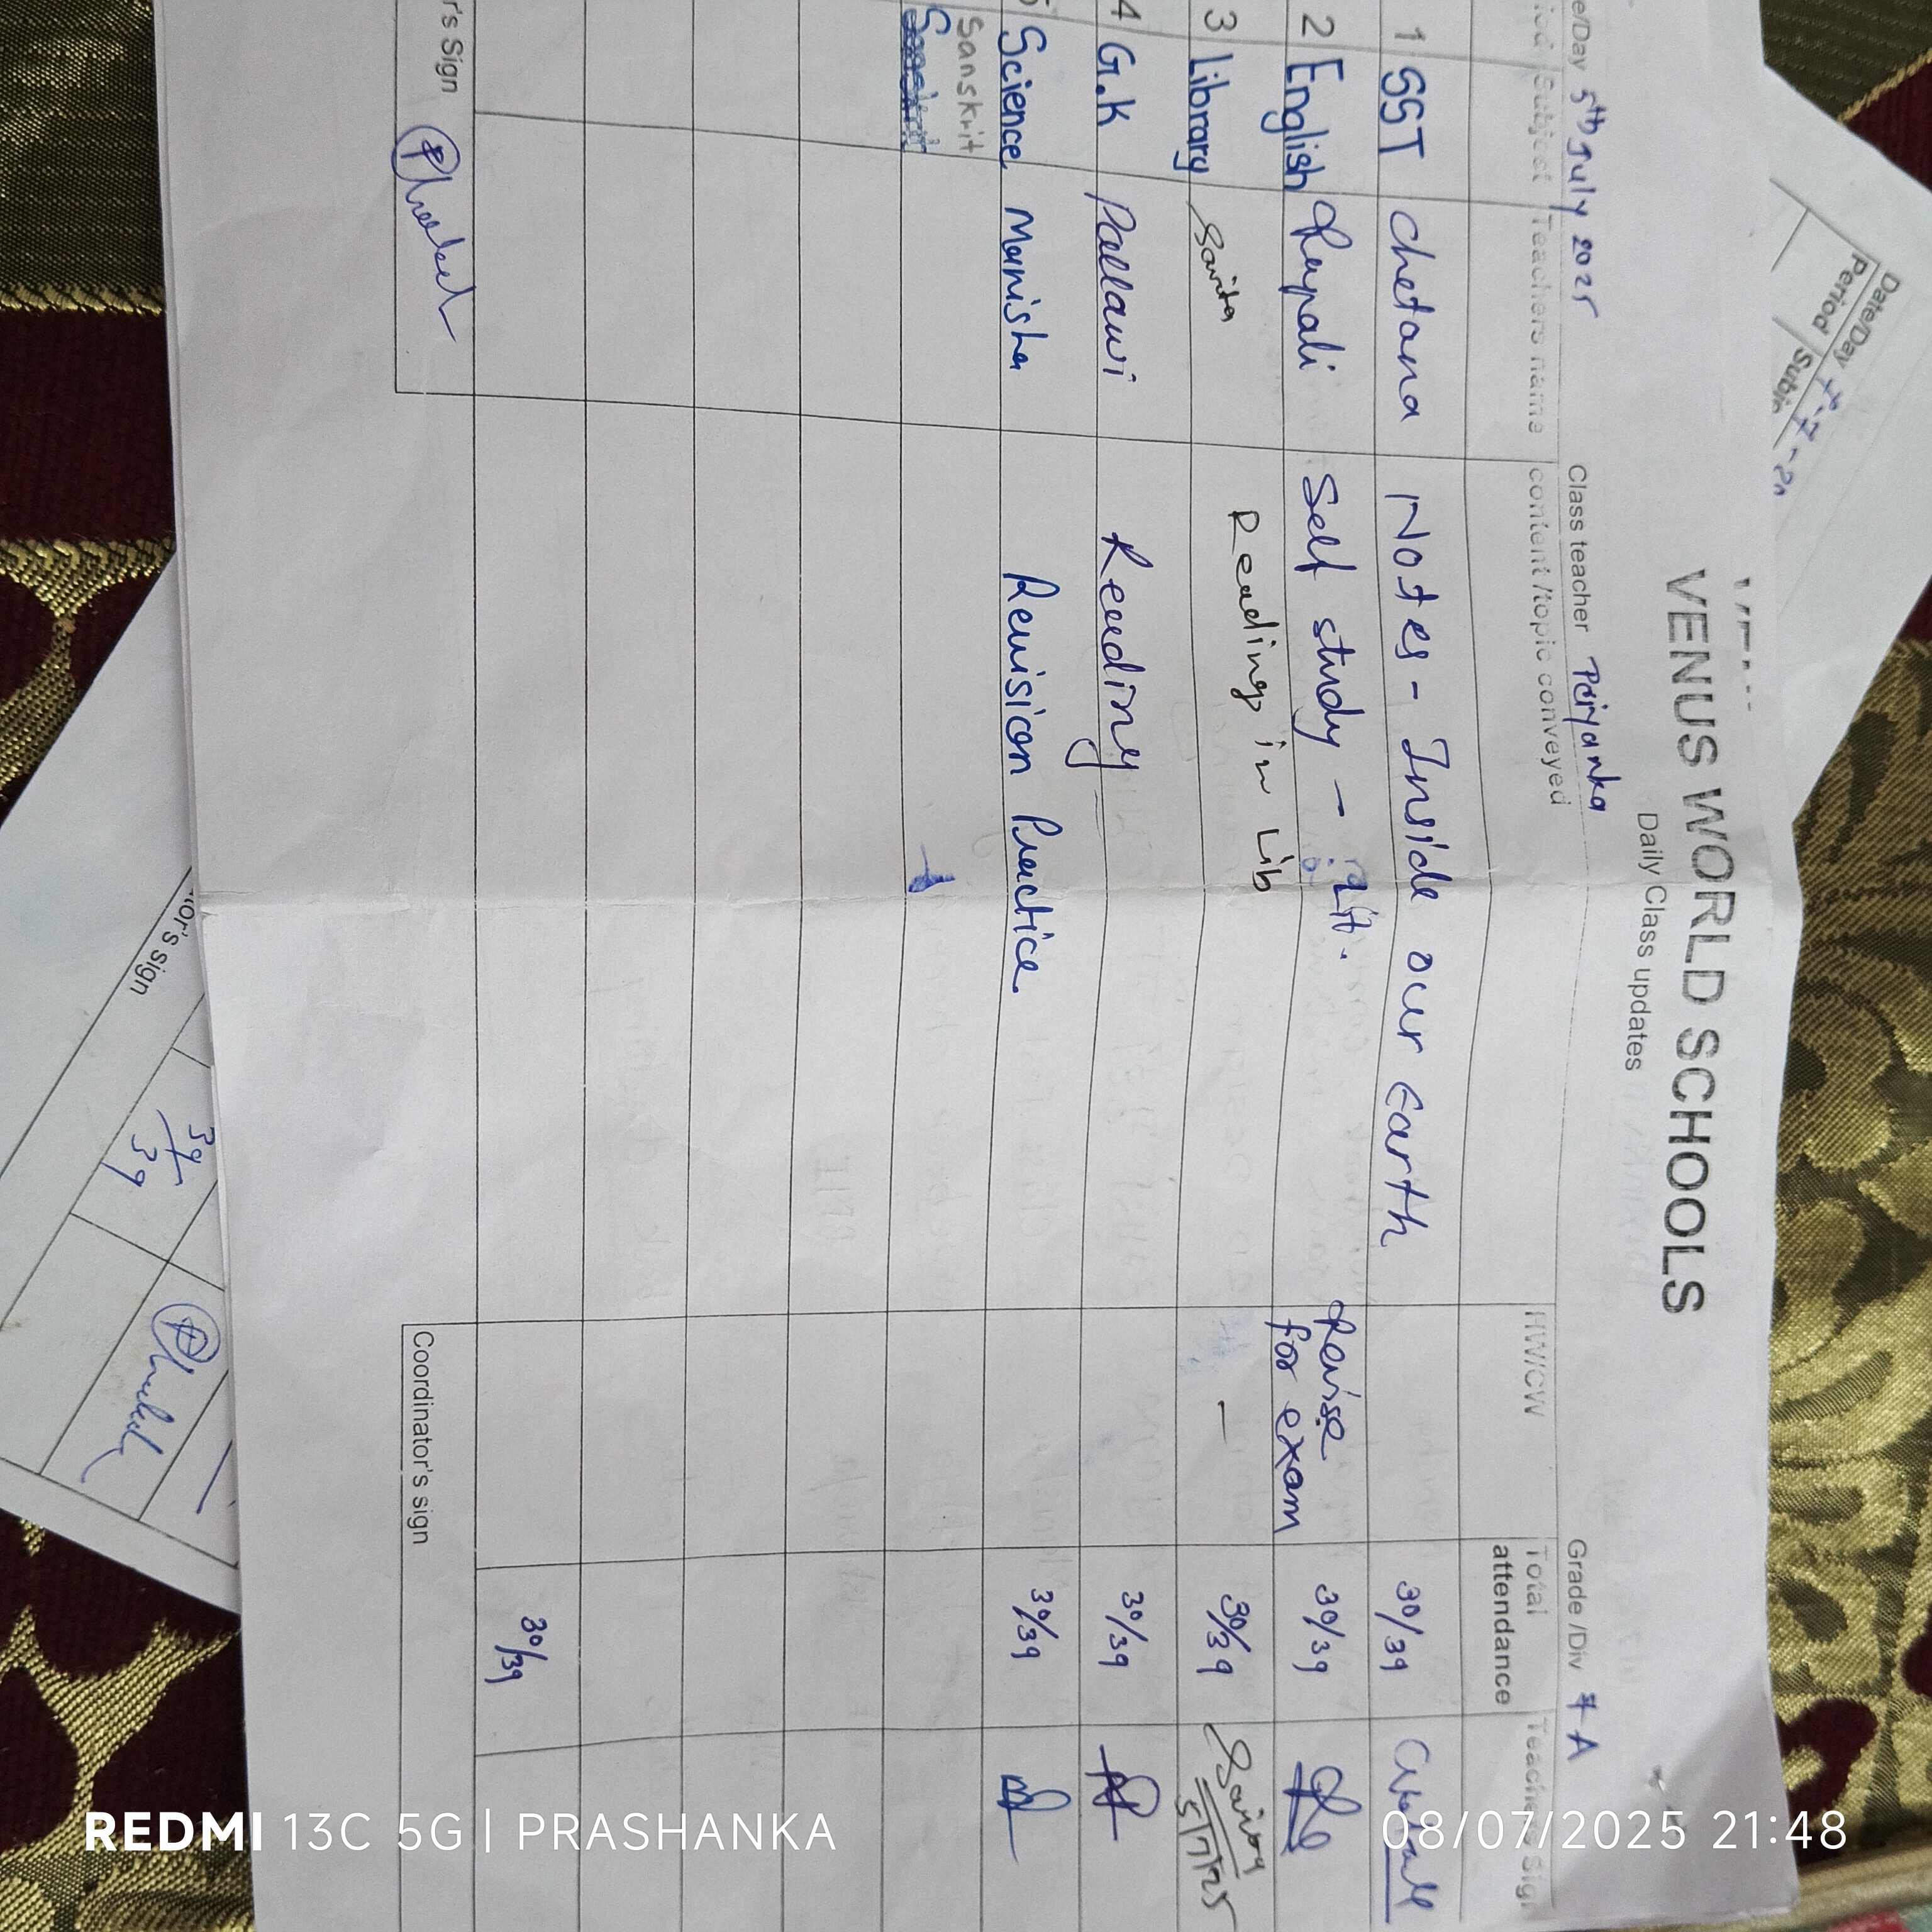 VENUS WORLD SCHOOLS
Daily Class updates
e/Day 5th July 2025 Class teacher Priyanka Grade /Div 7 A
iod Subject Teachers name content /topic conveyed HW/CW Total attendance Teacher Sign
1 SST Chetana Notes - Inside our Earth 30/39
2 English Rupali Self study - Lit. Revise for exam 30/39
3 Library Savita Reading in Lib — 30/39 5/7/25
4 G.K Pallawi Reading 30/39
5 Science Manisha Revision Practice. 30/39
Sanskrit
30/39
r's Sign Coordinator's sign
Date/Day
Period Subj
tor's sign
39
39
REDMI 13C 5G | PRASHANKA 08/07/2025 21:48